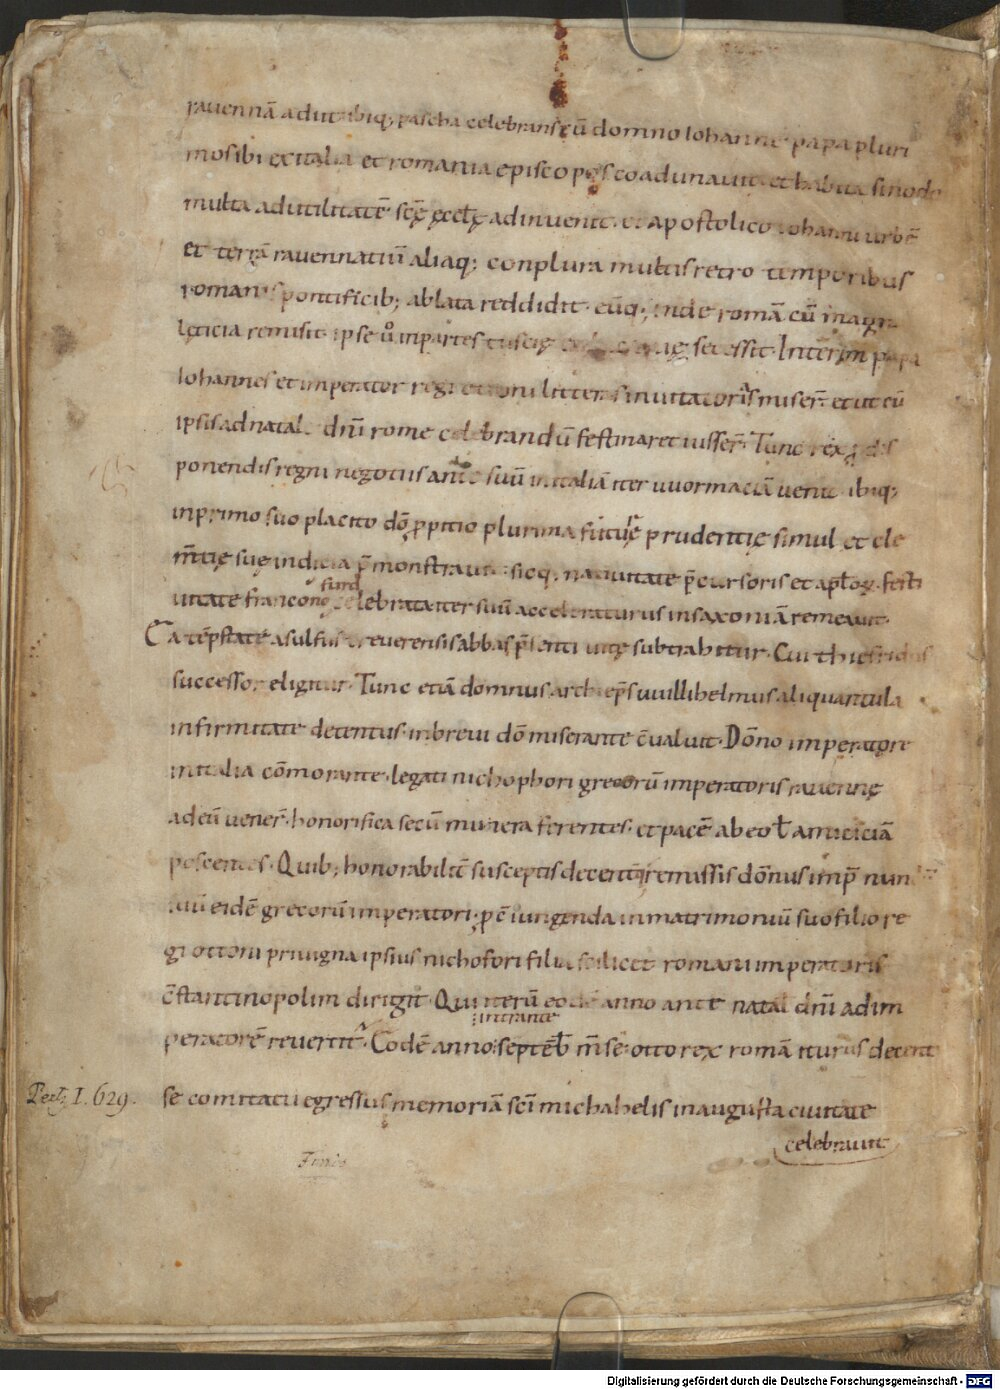 rauennā adiit ibiq; pascha celebrans cū domno Iohanne papa pluri
mos ibi ex italia et romania episcopos coadunauit et habita sinodo
multa ad utilitatē scę ęcclę adinuenit. et apostolico iohanni urbē
et terrā rauennatiū aliaq; conplura multis retro temporibus
romanis pontificib; ablata reddidit. eūq; inde romā cū magna
lęticia remisit. ipse ů in partes tuscię secessit. Interim papa
Iohannes et imperator regi ottoni litteras inuitatorias miser̄. et ut cū
ipsis ad natale dn̄i rome celebrandū festinaret iusser̄. Tunc rex ꝓ dis
ponendis regni negotiis ante suū in italiā iter uuormaciā uenit. ibiq;
in primo suo placito dō ꝓpitio plurima futurę prudentię simul et cle
m̄tię suę indicia p̄monstrauit. sicq; natiuitate p̄cursoris et apl̄oꝝ. festi
uitate franconofurd celebrata iter suū acceleraturus in saxoniā remeauit.
Ea tēpstate asulfus treuerensis abbas p̄senti uitę subtrahitur. Cui thiefridus
successor eligitur. Tunc etiā domnus archiep̄s uuillihelmus aliquantula
infirmitate detentus. in breui dō miserante c̄ualuit. Dōno imperatore
in italia cōmorante. legati nichophori grecorū imperatoris rauennę
ad eū uener̄. honorifica secū munera ferentes. et pacē ab eo ł amiciciā
poscentes. Quib; honorabilit̄ susceptis decent̄q; remissis dōnus imp̄ nun
suū eidē grecorū imperatori. ꝓ c̄iungenda in matrimoniū suo filio re
gi ottoni priuigna ipsius nichofori filia scilicet romani imperatoris
c̄stantinopolim dirigit. Qui iterū eodē anno ante natal dn̄i ad im
peratorē reuertit̄. Eodē anno intrante septēb̄ m̄se. otto rex romā iturus decent
Pertz I. 629.
se comitatu egressus memoriā scī michahelis in augusta ciuitate
celebrauit
Finis
Digitalisierung gefördert durch die Deutsche Forschungsgemeinschaft - DFG